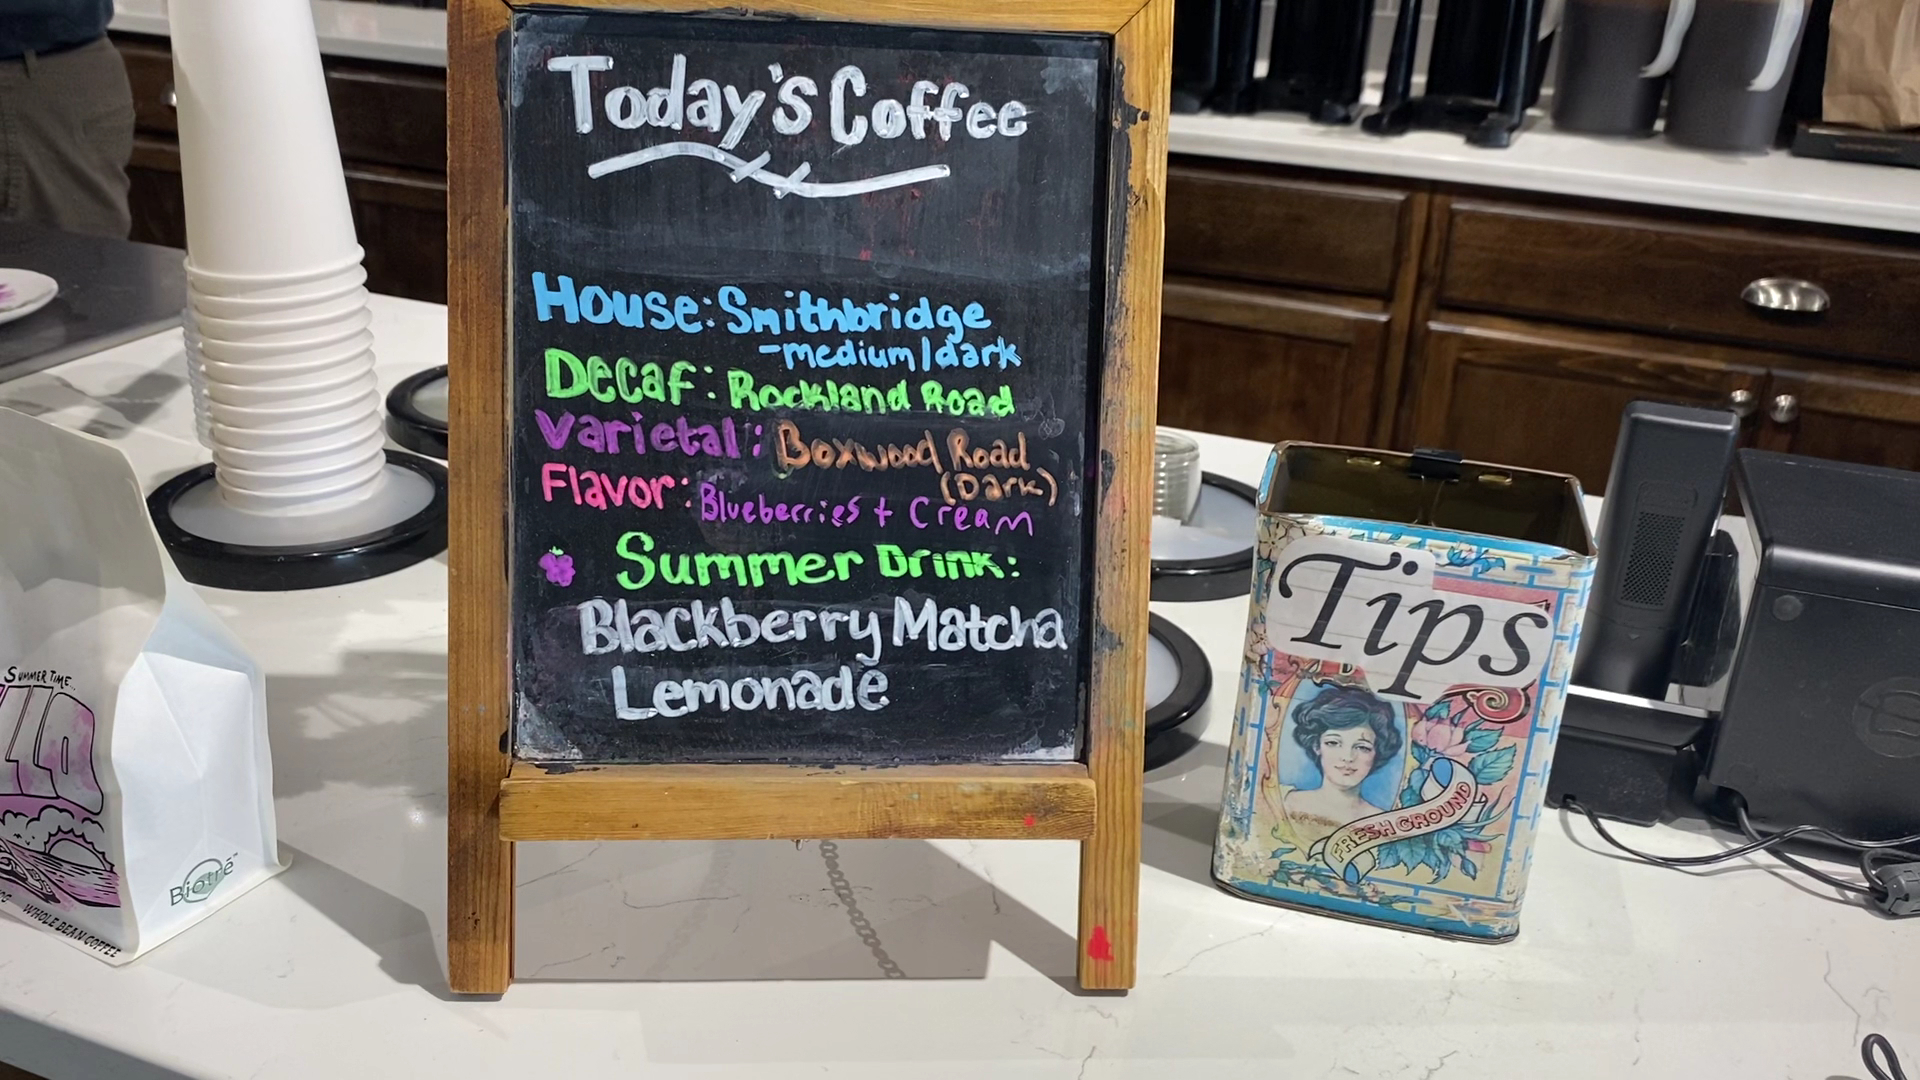 Today's Coffee
House: Smithbridge
-medium/dark
Decaf: Rockland Road
Varietal: Boxwood Road
(Dark)
Flavor: Blueberries + Cream
Summer Drink:
Blackberry Matcha
Lemonade
Tips
FRESH GROUND
SUMMER TIME...
WHOLE BEAN COFFEE
Biotrē™